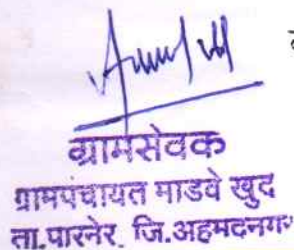 ग्रामसेवक
ग्रामपंचायत माडवे खुद
ता.पारनेर. जि.अहमदनगर